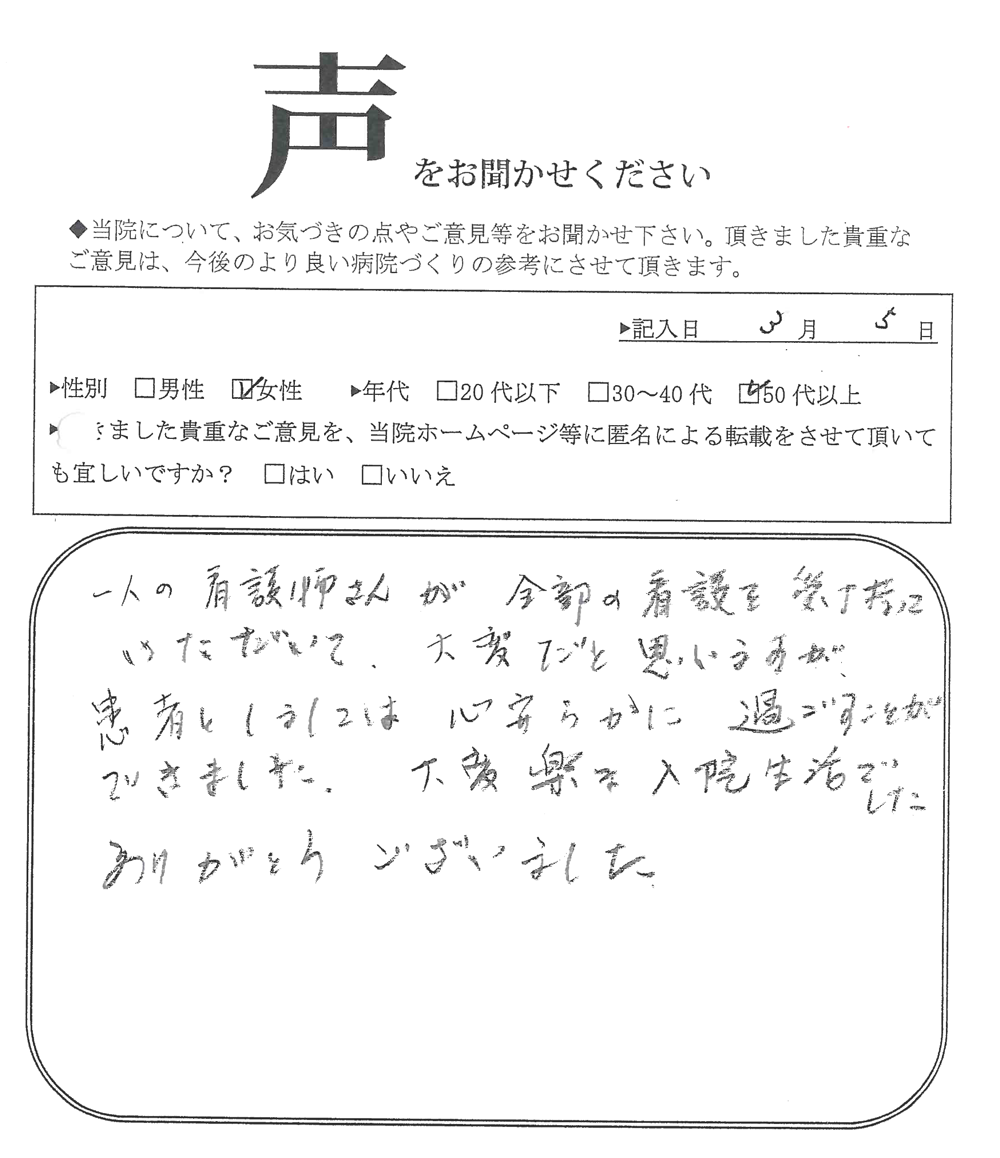 声をお聞かせください
◆当院について、お気づきの点やご意見等をお聞かせ下さい。頂きました貴重な
ご意見は、今後のより良い病院づくりの参考にさせて頂きます。
▶記入日 3月 5日
▶性別 □男性 ☑女性 ▶年代 □20代以下 □30～40代 ☑50代以上
▶ きました貴重なご意見を、当院ホームページ等に匿名による転載をさせて頂いて
も宜しいですか？ □はい □いいえ
一人の看護師さんが 全部の看護を受け持って
いただいて、大変だと思いますが、
患者としましては 心安らかに 過ごすことが
できました。 大変楽な入院生活で
した
ありがとうございました。